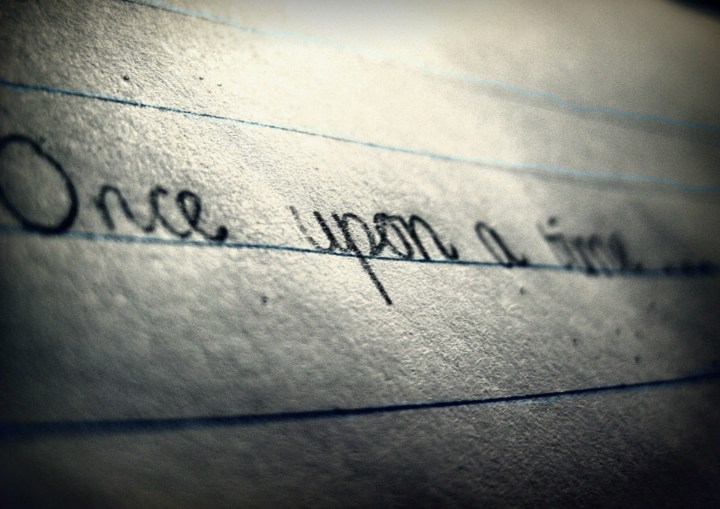 Once upon a time....